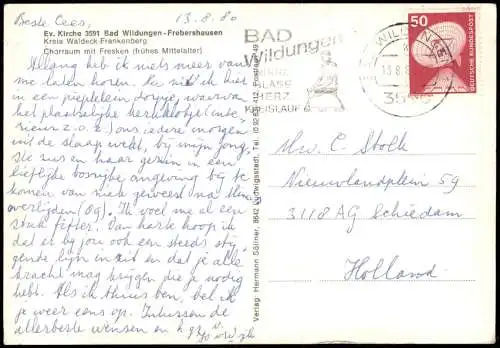 13.8.80
Beste Cees,
Ev. Kirche 3591 Bad Wildungen-Frebershausen
Kreis Waldeck-Frankenberg
Chorraum mit Fresken (frühes Mittelalter)
Allang heb ik niets meer van
me laten horen. Nu zit ik hier
in een pieplein dorpje, waarvan
het plaatselijke kerkklokje (inte-
rieur z.o.z.) ons iedere morgen
uit de slaap wekt, bij mijn jong-
ste zus en haar gezin in een
liefelijke bosrijke omgeving bij te
komen van niet geweest na
overlijden (Og). Ik voel me al een
stuk fitter. Van harte hoop ik
dat er bij jou ook een steeds stij-
gende lijn in zit en dat je alle
kracht mag krijgen die je nodig
hebt. Als ik thuis ben, bel ik
je weer eens op. Intussen de
allerbeste wensen en
Verlag Hermann Söllner, 8642 Ludwigsstadt, Tel. (0 92 63) 412
BAD
Wildungen
HERZ
KREISLAUF
WILDUNGEN
13.8.80
50
DEUTSCHE BUNDESPOST
Mw. C. Stolk
Nieuwlandplein 59
3118 AG Schiedam
Holland